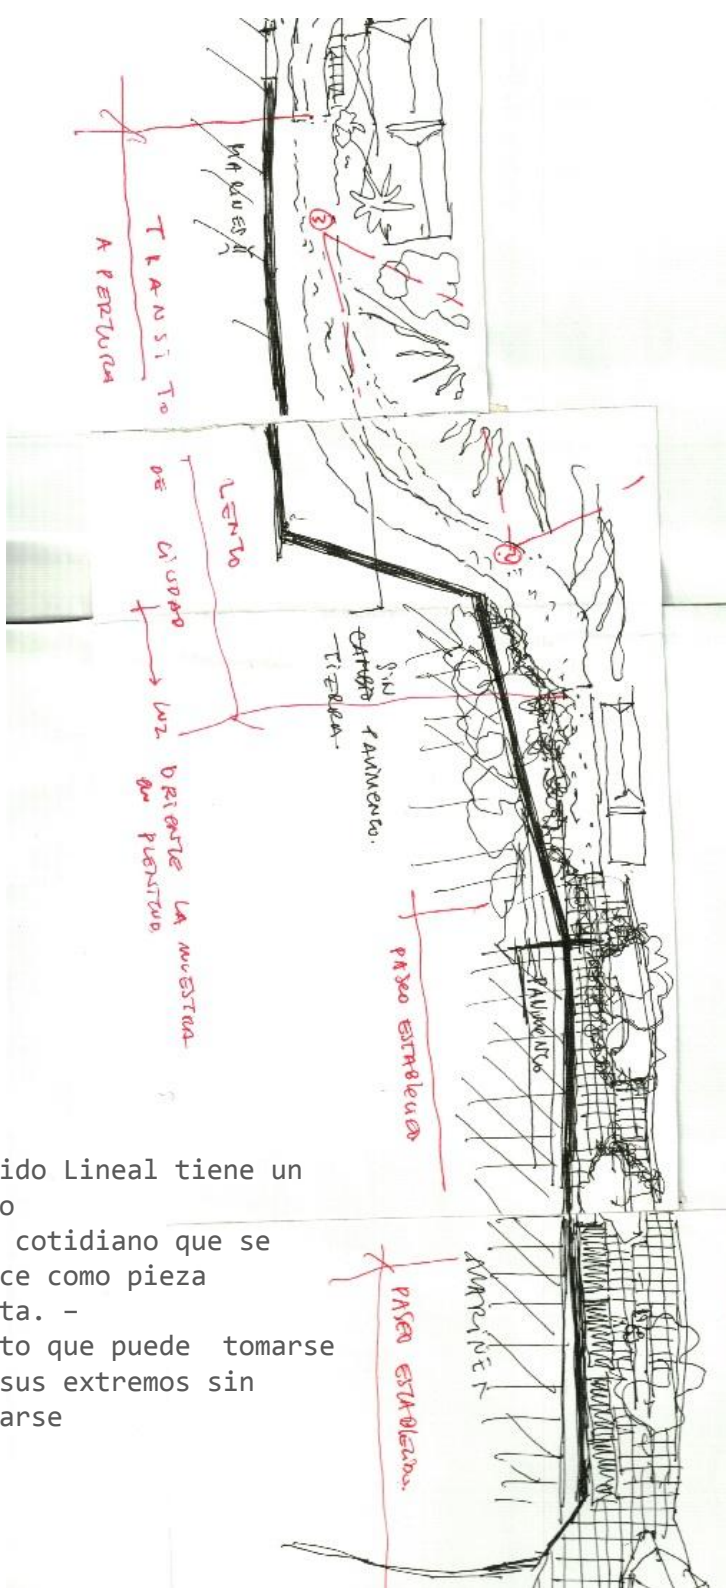 MARINES
TRANSITO
APERTURA
3
LENTO
DE CIUDAD
2
LUZ ORIENTE LA MUESTRA
EN PLENITUD.
SIN
CAMBIO PAVIMENTO.
-TIERRA
PAVIMENTO
PASEO ESTABLECIDO
MARINES
PASEO ESTABLECIDO.
ido Lineal tiene un
o
cotidiano que se
ce como pieza
ta. –
to que puede tomarse
sus extremos sin
arse